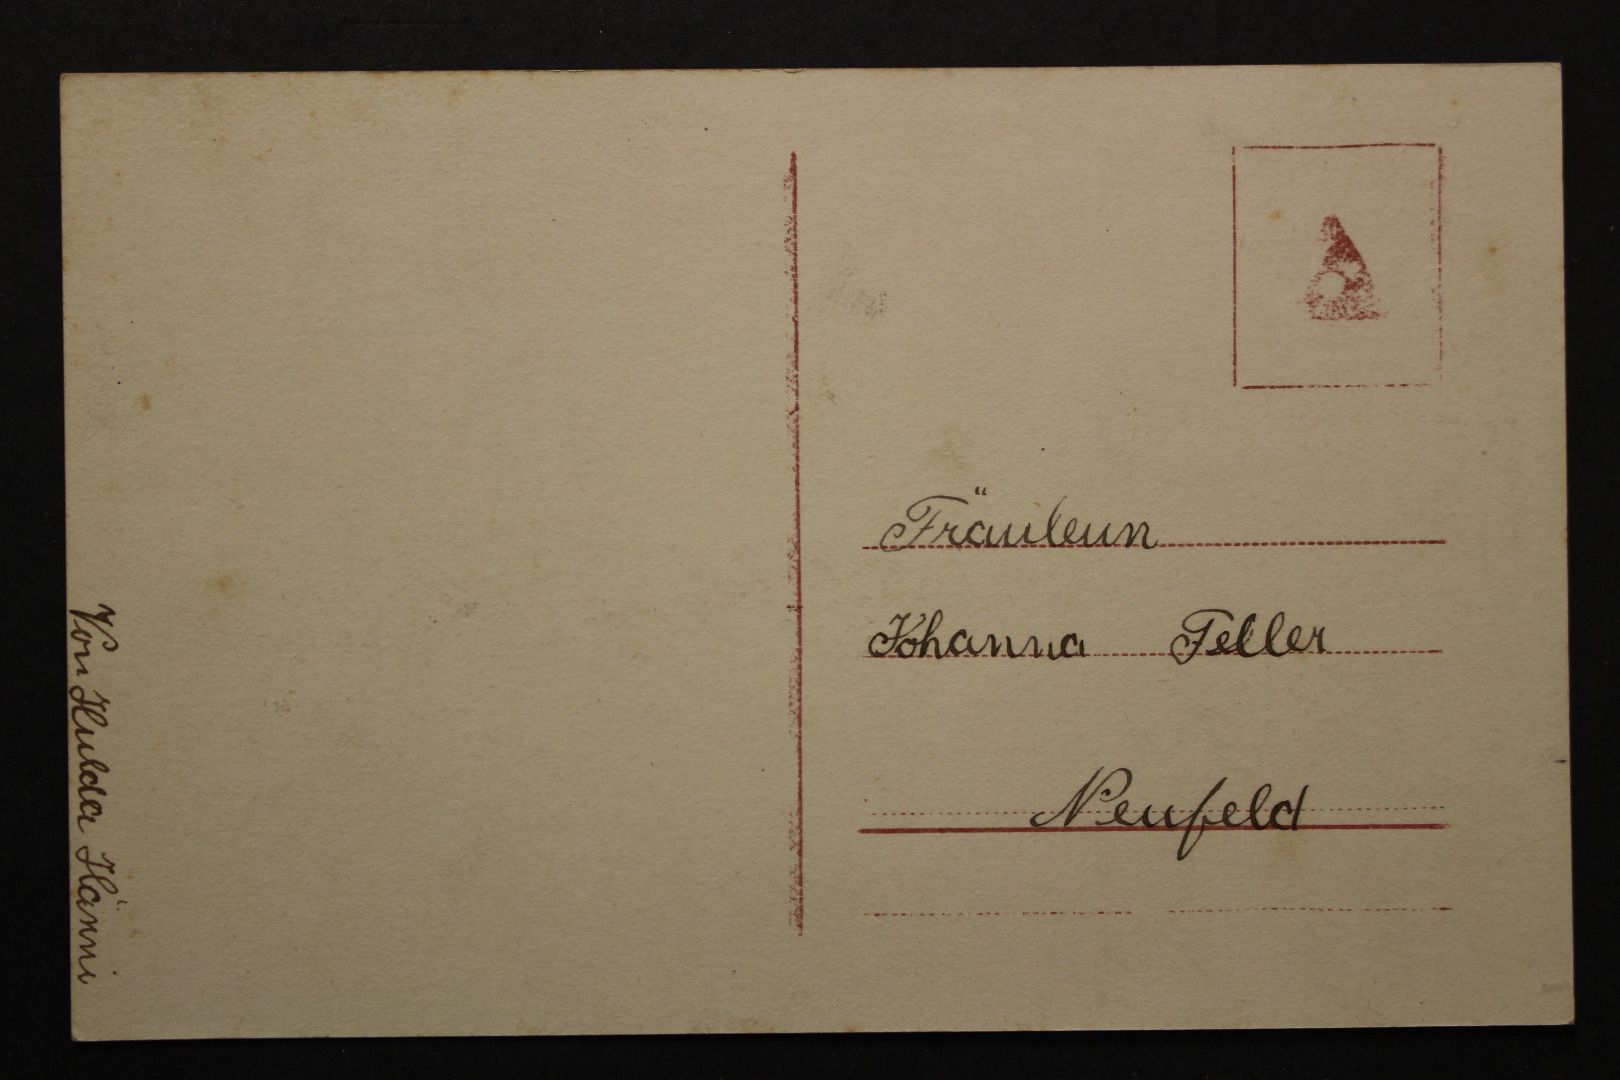 Fräulein
Johanna Feller
Neufeld
Von Hulda Hänni